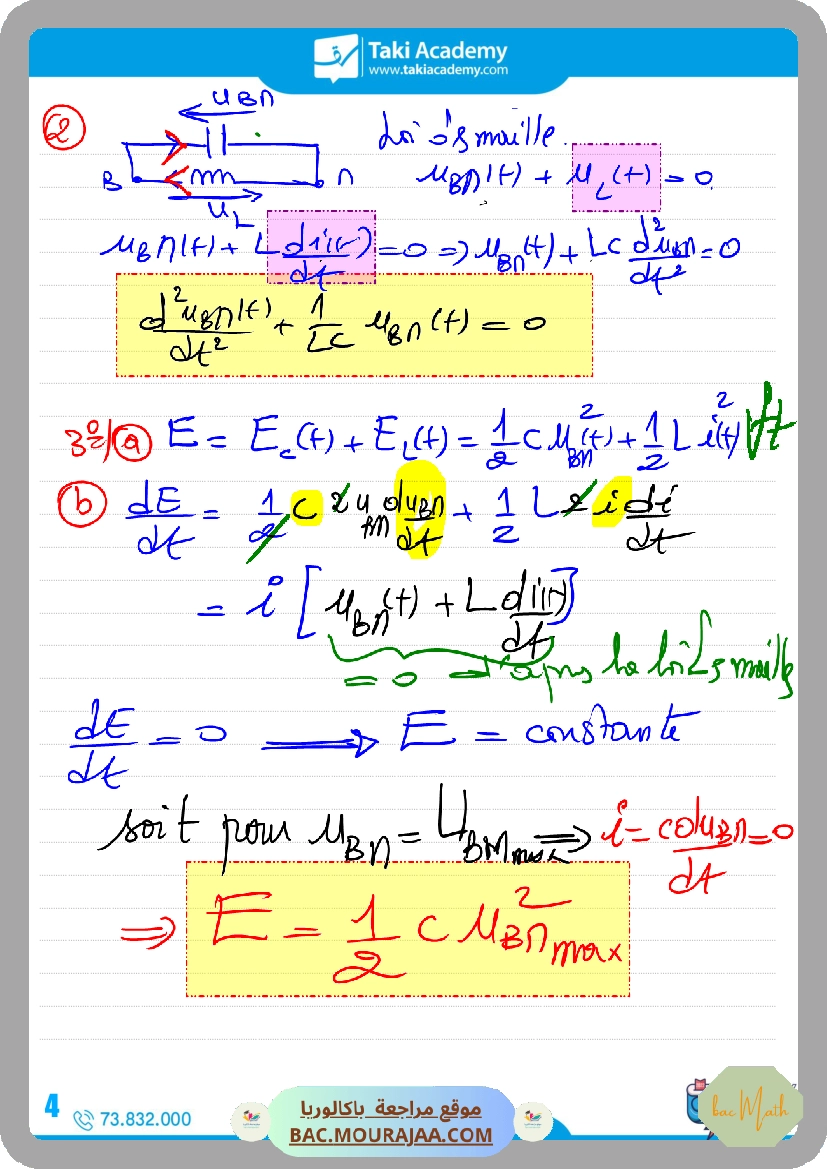 Taki Academy
www.takiacademy.com
2
u_BM
Loi des maille.
B M
u_L
u_BM(t) + u_L(t) = 0
u_BM(t) + L di(t)/dt = 0 ⇒ u_BM(t) + LC d²u_BM/dt² = 0
d²u_BM(t)/dt² + 1/LC u_BM(t) = 0
3°/ a E = E_c(t) + E_L(t) = 1/2 C u_BM²(t) + 1/2 L i²(t) ∀t
b dE/dt = 1/2 C 2 u_BM du_BM/dt + 1/2 L 2 i di/dt
= i [ u_BM(t) + L di(t)/dt ]
= 0 d'après la loi des maille
dE/dt = 0 → E = constante
soit pour u_BM = U_BM max ⇒ i = C du_BM/dt = 0
⇒ E = 1/2 C U²_BM max
4
73.832.000
موقع مراجعة باكالوريا
BAC.MOURAJAA.COM
bac Math